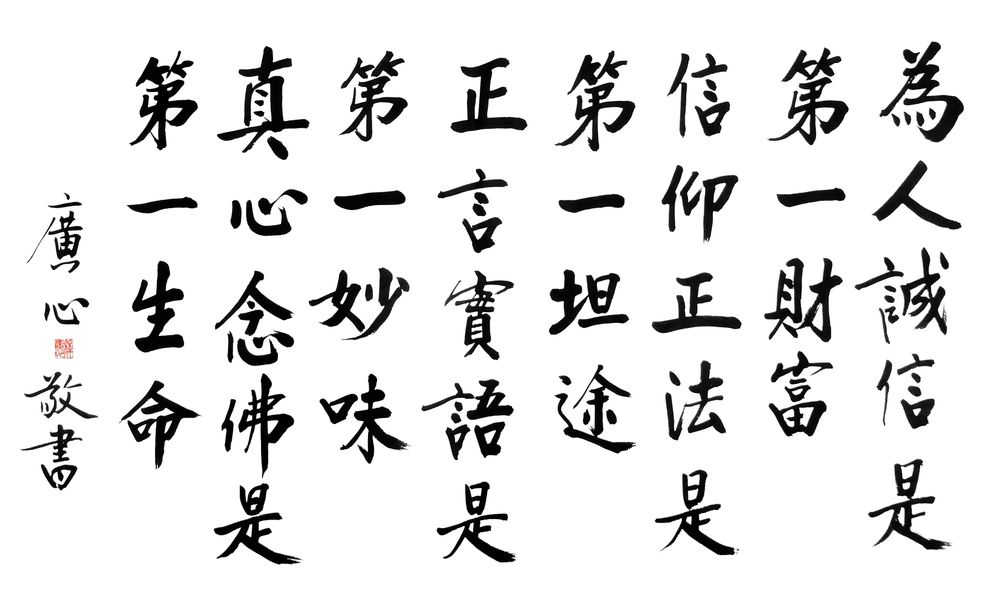 為人誠信是
第一財富
信仰正法是
第一坦途
正言實語是
第一妙味
真心念佛是
第一生命
廣心敬書